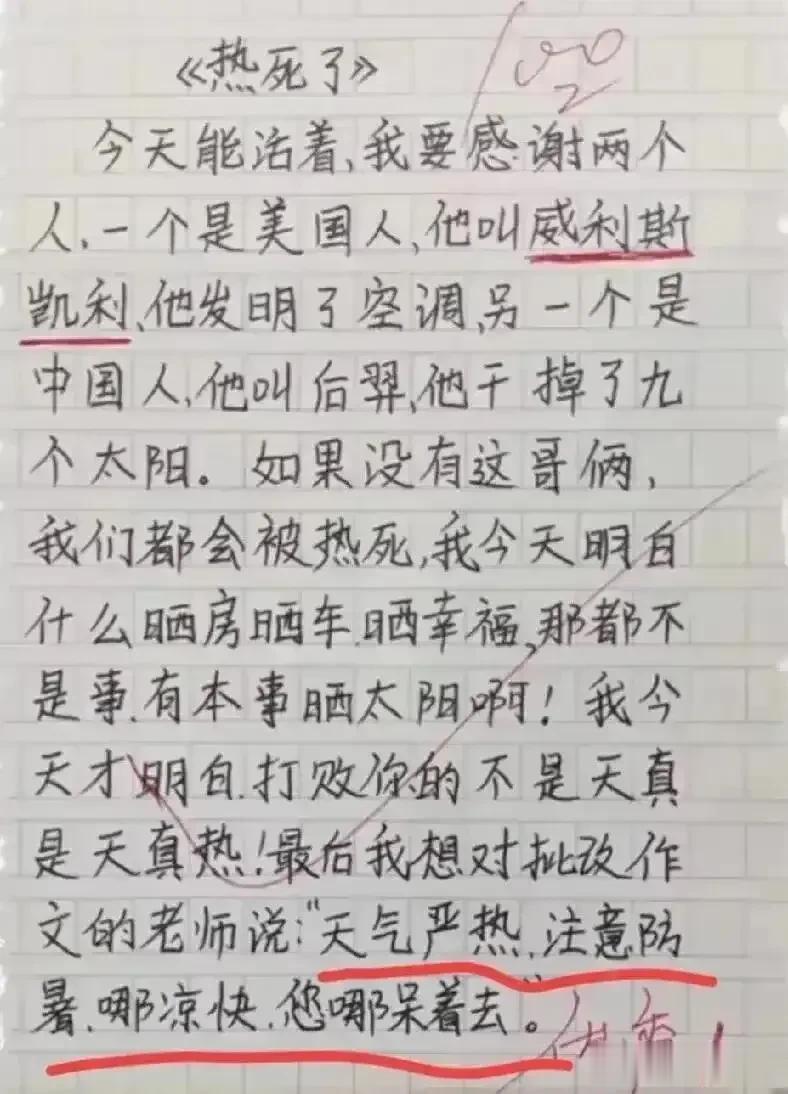 《热死了》
100
今天能活着、我要感谢两个
人、一个是美国人、他叫威利斯
凯利、他发明了空调、另一个是
中国人、他叫后羿、他干掉了九
个太阳。如果没有这哥俩，
我们都会被热死，我今天明白
什么晒房晒车、晒幸福，那都不
是事、有本事晒太阳啊！我今
天才明白、打败你的不是天真
是天真热！最后我想对批改作
文的老师说：“天气严热、注意防
暑、哪凉快、您哪呆着去”。
优秀！